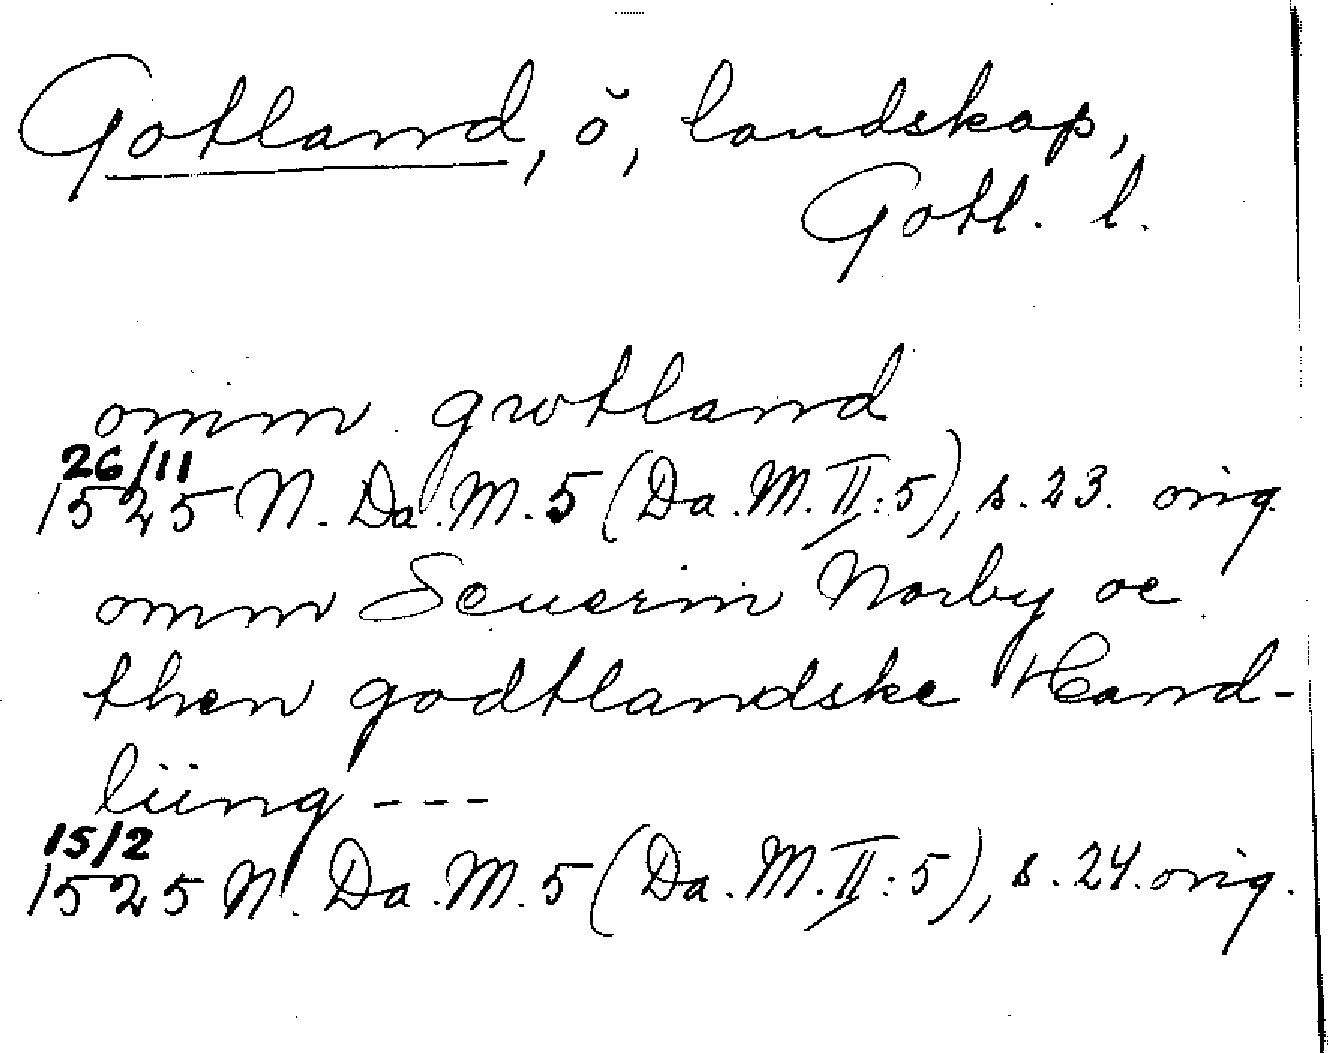 Gotland, ö, landskap,
Gotl. l.
omm gwtland
26/11
1525 N. Da. M. 5 (Da. M. II: 5), s. 23. orig.
omm Seuerin Norby oc
then godtlandske Hand-
liing ---
15/2
1525 N. Da. M. 5 (Da. M. II: 5), s. 24. orig.